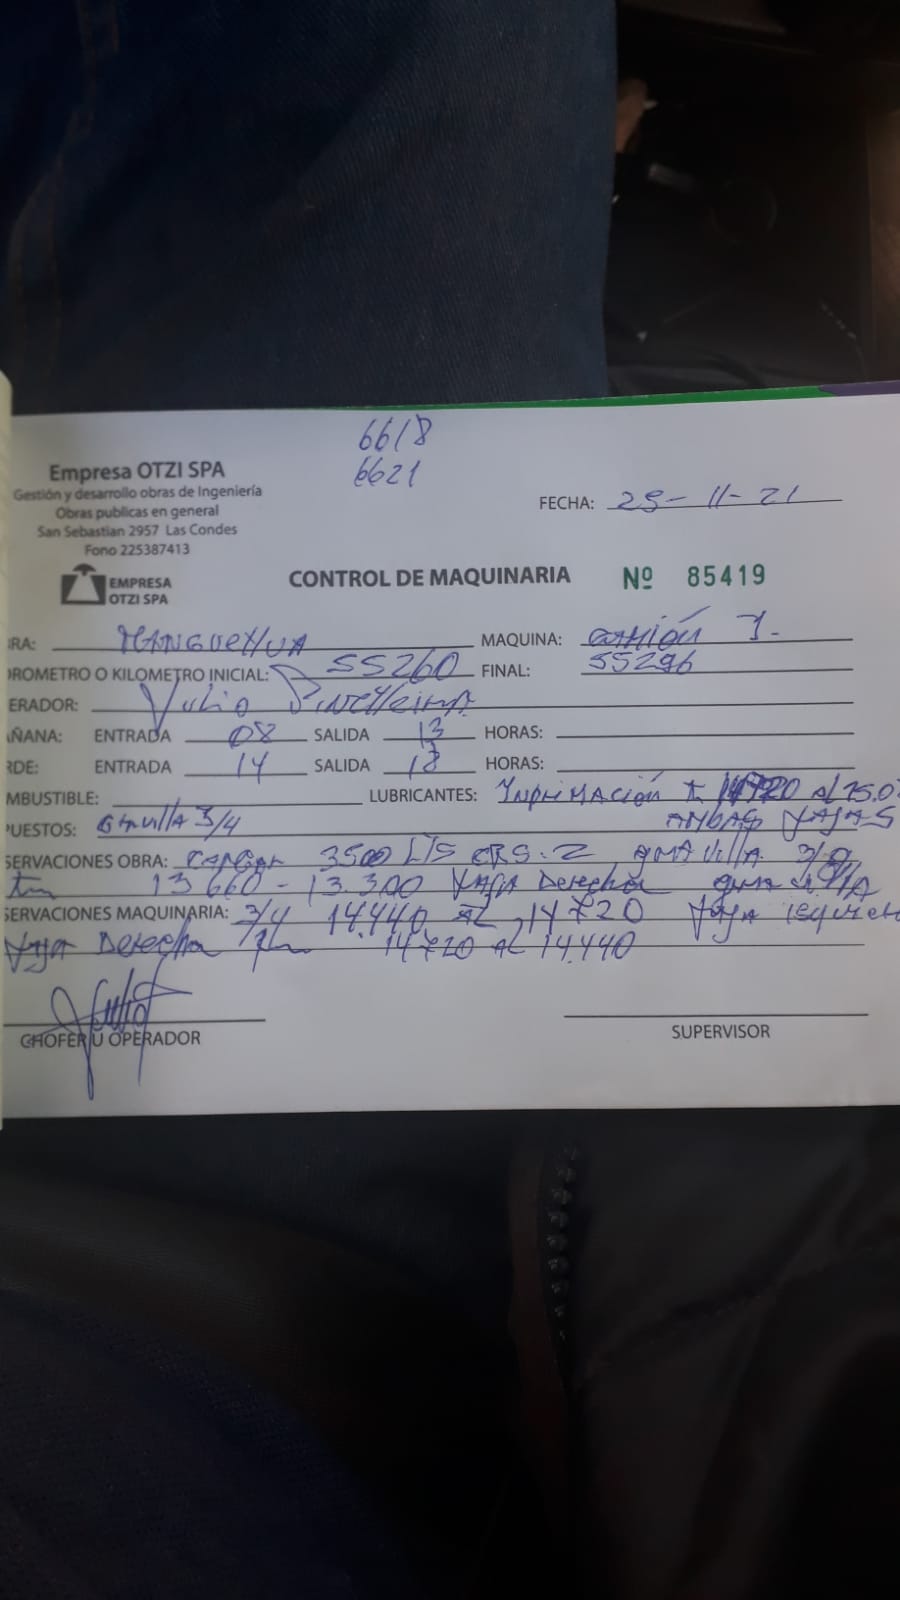 6618
6621
Empresa OTZI SPA
Gestión y desarrollo obras de Ingeniería
Obras publicas en general
San Sebastian 2957 Las Condes
Fono 225387413
EMPRESA
OTZI SPA
FECHA: 25-11-21
CONTROL DE MAQUINARIA Nº 85419
RA: MAQUINA: camión
ROMETRO O KILOMETRO INICIAL: 55260 FINAL: 55296
ERADOR: Julio
AÑANA: ENTRADA 08 SALIDA 13 HORAS:
RDE: ENTRADA 14 SALIDA 18 HORAS:
MBUSTIBLE: LUBRICANTES: Inprimación al 15.0
AMBAS FAJAS
PUESTOS: Gravilla 3/4
SERVACIONES OBRA: CARGAR 3500 LTS CRS.2
13660-13.300 FAJA Derecha
SERVACIONES MAQUINARIA: 3/4 14.440 AL 14720 FAJA
FAJA Derecha 14720 AL 14.440
CHOFER U OPERADOR
SUPERVISOR